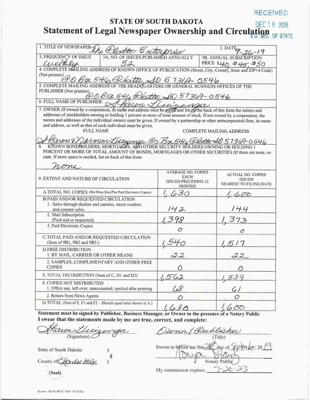 RECEIVED
DEC 18 2019
S.D. SEC. OF STATE
STATE OF SOUTH DAKOTA
Statement of Legal Newspaper Ownership and Circulation
1. TITLE OF NEWSPAPER The Platte Enterprise
2. DATE 9-26-19
3. FREQUENCY OF ISSUE weekly
3A. NO. OF ISSUES PUBLISHED ANNUALLY 52
3B. ANNUAL SUBSCRIPTION PRICE $40 $45 $50
4. COMPLETE MAILING ADDRESS OF KNOWN OFFICE OF PUBLICATION (Street, City, County, State and ZIP+4 Code) (Not printers)
P O Box 546 Platte SD 57369-0546
5. COMPLETE MAILING ADDRESS OF THE HEADQUARTERS OF GENERAL BUSINESS OFFICES OF THE PUBLISHER (Not printers)
P O Box 546 Platte SD 57369-0546
6. FULL NAME OF PUBLISHER: Sharon Huizenga
7. OWNER (If owned by a corporation, its name and address must be stated and
addresses of stockholders owning or holding 1 percent or more of total amount of stock. If not owned by a corporation, the
names and addresses of the individual owners must be given. If owned by a partnership or other unincorporated firm, its name
and address, as well as that of each individual must be given.
FULL NAME
COMPLETE MAILING ADDRESS
8. KNOWN BONDHOLDERS, MORTGAGEES, AND OTHER SECURITY HOLDERS OWNING OR HOLDING 1
PERCENT OR MORE OF TOTAL AMOUNT OF BONDS, MORTGAGES OR OTHER SECURITIES (If there are none, so
state. If more space is needed, list on back of this form.
None
9. EXTENT AND NATURE OF CIRCULATION
AVERAGE NO. COPIES EACH ISSUED PRECEDING 12 MONTHS
ACTUAL NO. COPIES ISSUED NEAREST TO FILING DATE
A. TOTAL NO. COPIES (Net Press Run) 1,630 1,600
B. PAID AND/OR REQUESTED CIRCULATION
1. Sales through dealers and carriers, street vendors, and counter sales. 142 144
2. Mail Subscription (Paid and or requested) 1,398 1,373
3. Paid Electronic Copies 0 0
C. TOTAL PAID AND/OR REQUESTED CIRCULATION (Sum of 9B1, 9B2 and 9B3) 1,540 1,517
D. FREE DISTRIBUTION
1. BY MAIL, CARRIER OR OTHER MEANS 22 22
2. SAMPLES, COMPLIMENTARY AND OTHER FREE COPIES 0 0
E. TOTAL DISTRIBUTION (Sum of C, D1 and D2) 1,562 1,539
F. COPIES NOT DISTRIBUTED
1. Office use, left over, unaccounted, spoiled after printing 68 61
2. Return from News Agents 0 0
G. TOTAL (Sum of E, F1 and F2 - Should equal total shown in A.) 1,630 1,600
Statement must be signed by Publisher, Business Manager, or Owner in the presence of a Notary Public
I swear that the statements made by me are true, correct, and complete:
Sharon Huizenga Owner/Publisher
(Signature) (Title)
State of South Dakota
Sworn to before me this day of September, 2019
County of Charles Mix
Notary Public
(Seal)
My commission expires: 7-20-23